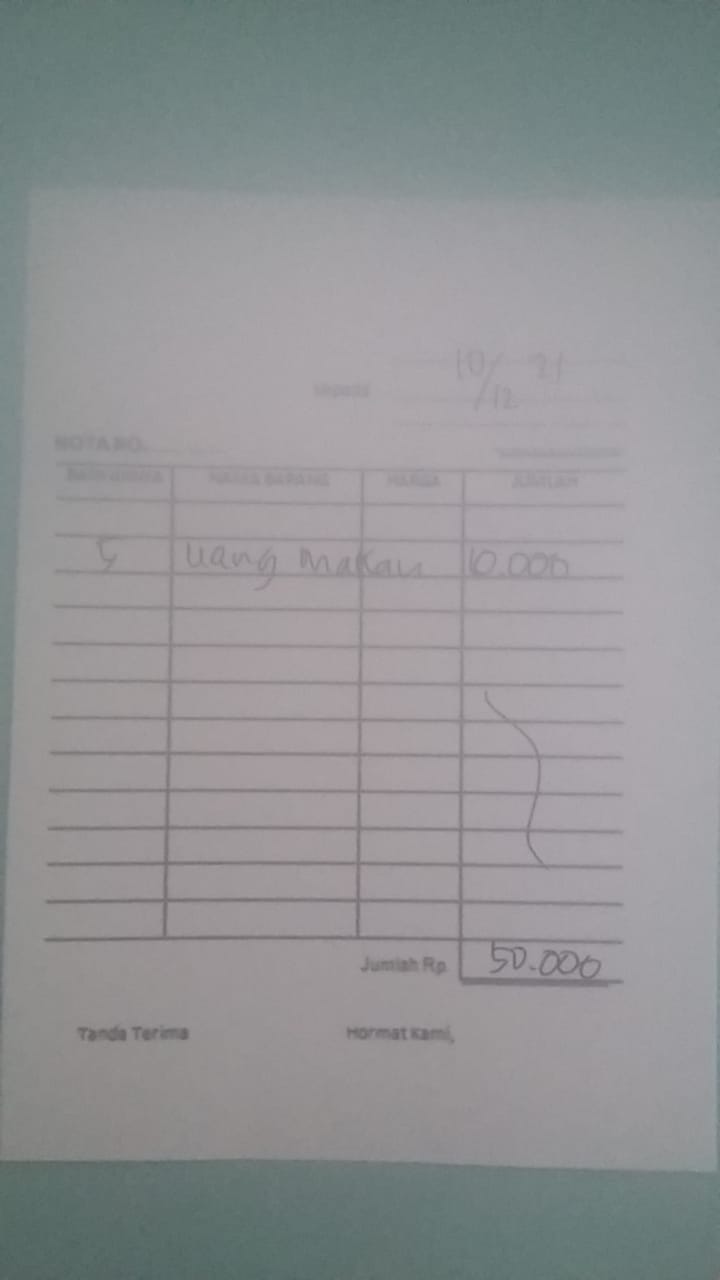 10/12 21
Kepada
NOTA NO.
BANYAKNYA NAMA BARANG HARGA JUMLAH
5 uang makan 10.000
Jumlah Rp. 50.000
Tanda Terima Hormat Kami,